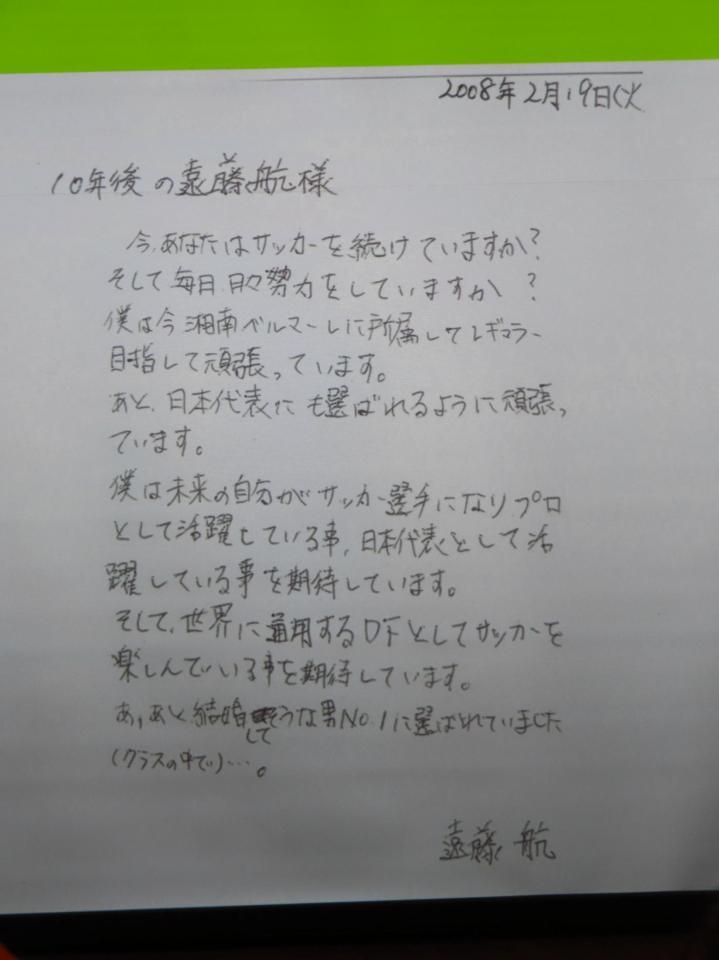 2008年2月19日(火
10年後の遠藤航様
今、あなたはサッカーを続けていますか?
そして毎日、日々努力をしていますか?
僕は今湘南ベルマーレに所属してレギュラー
目指して頑張っています。
あと、日本代表にも選ばれるように頑張っ
ています。
僕は未来の自分がサッカー選手になりプロ
として活躍している事、日本代表として活
躍している事を期待しています。
そして、世界に通用するDFとしてサッカーを
楽しんでいる事を期待しています。
あ,あと、結婚してそうな男No.1に選ばれていました
(クラスの中で)…。
遠藤 航